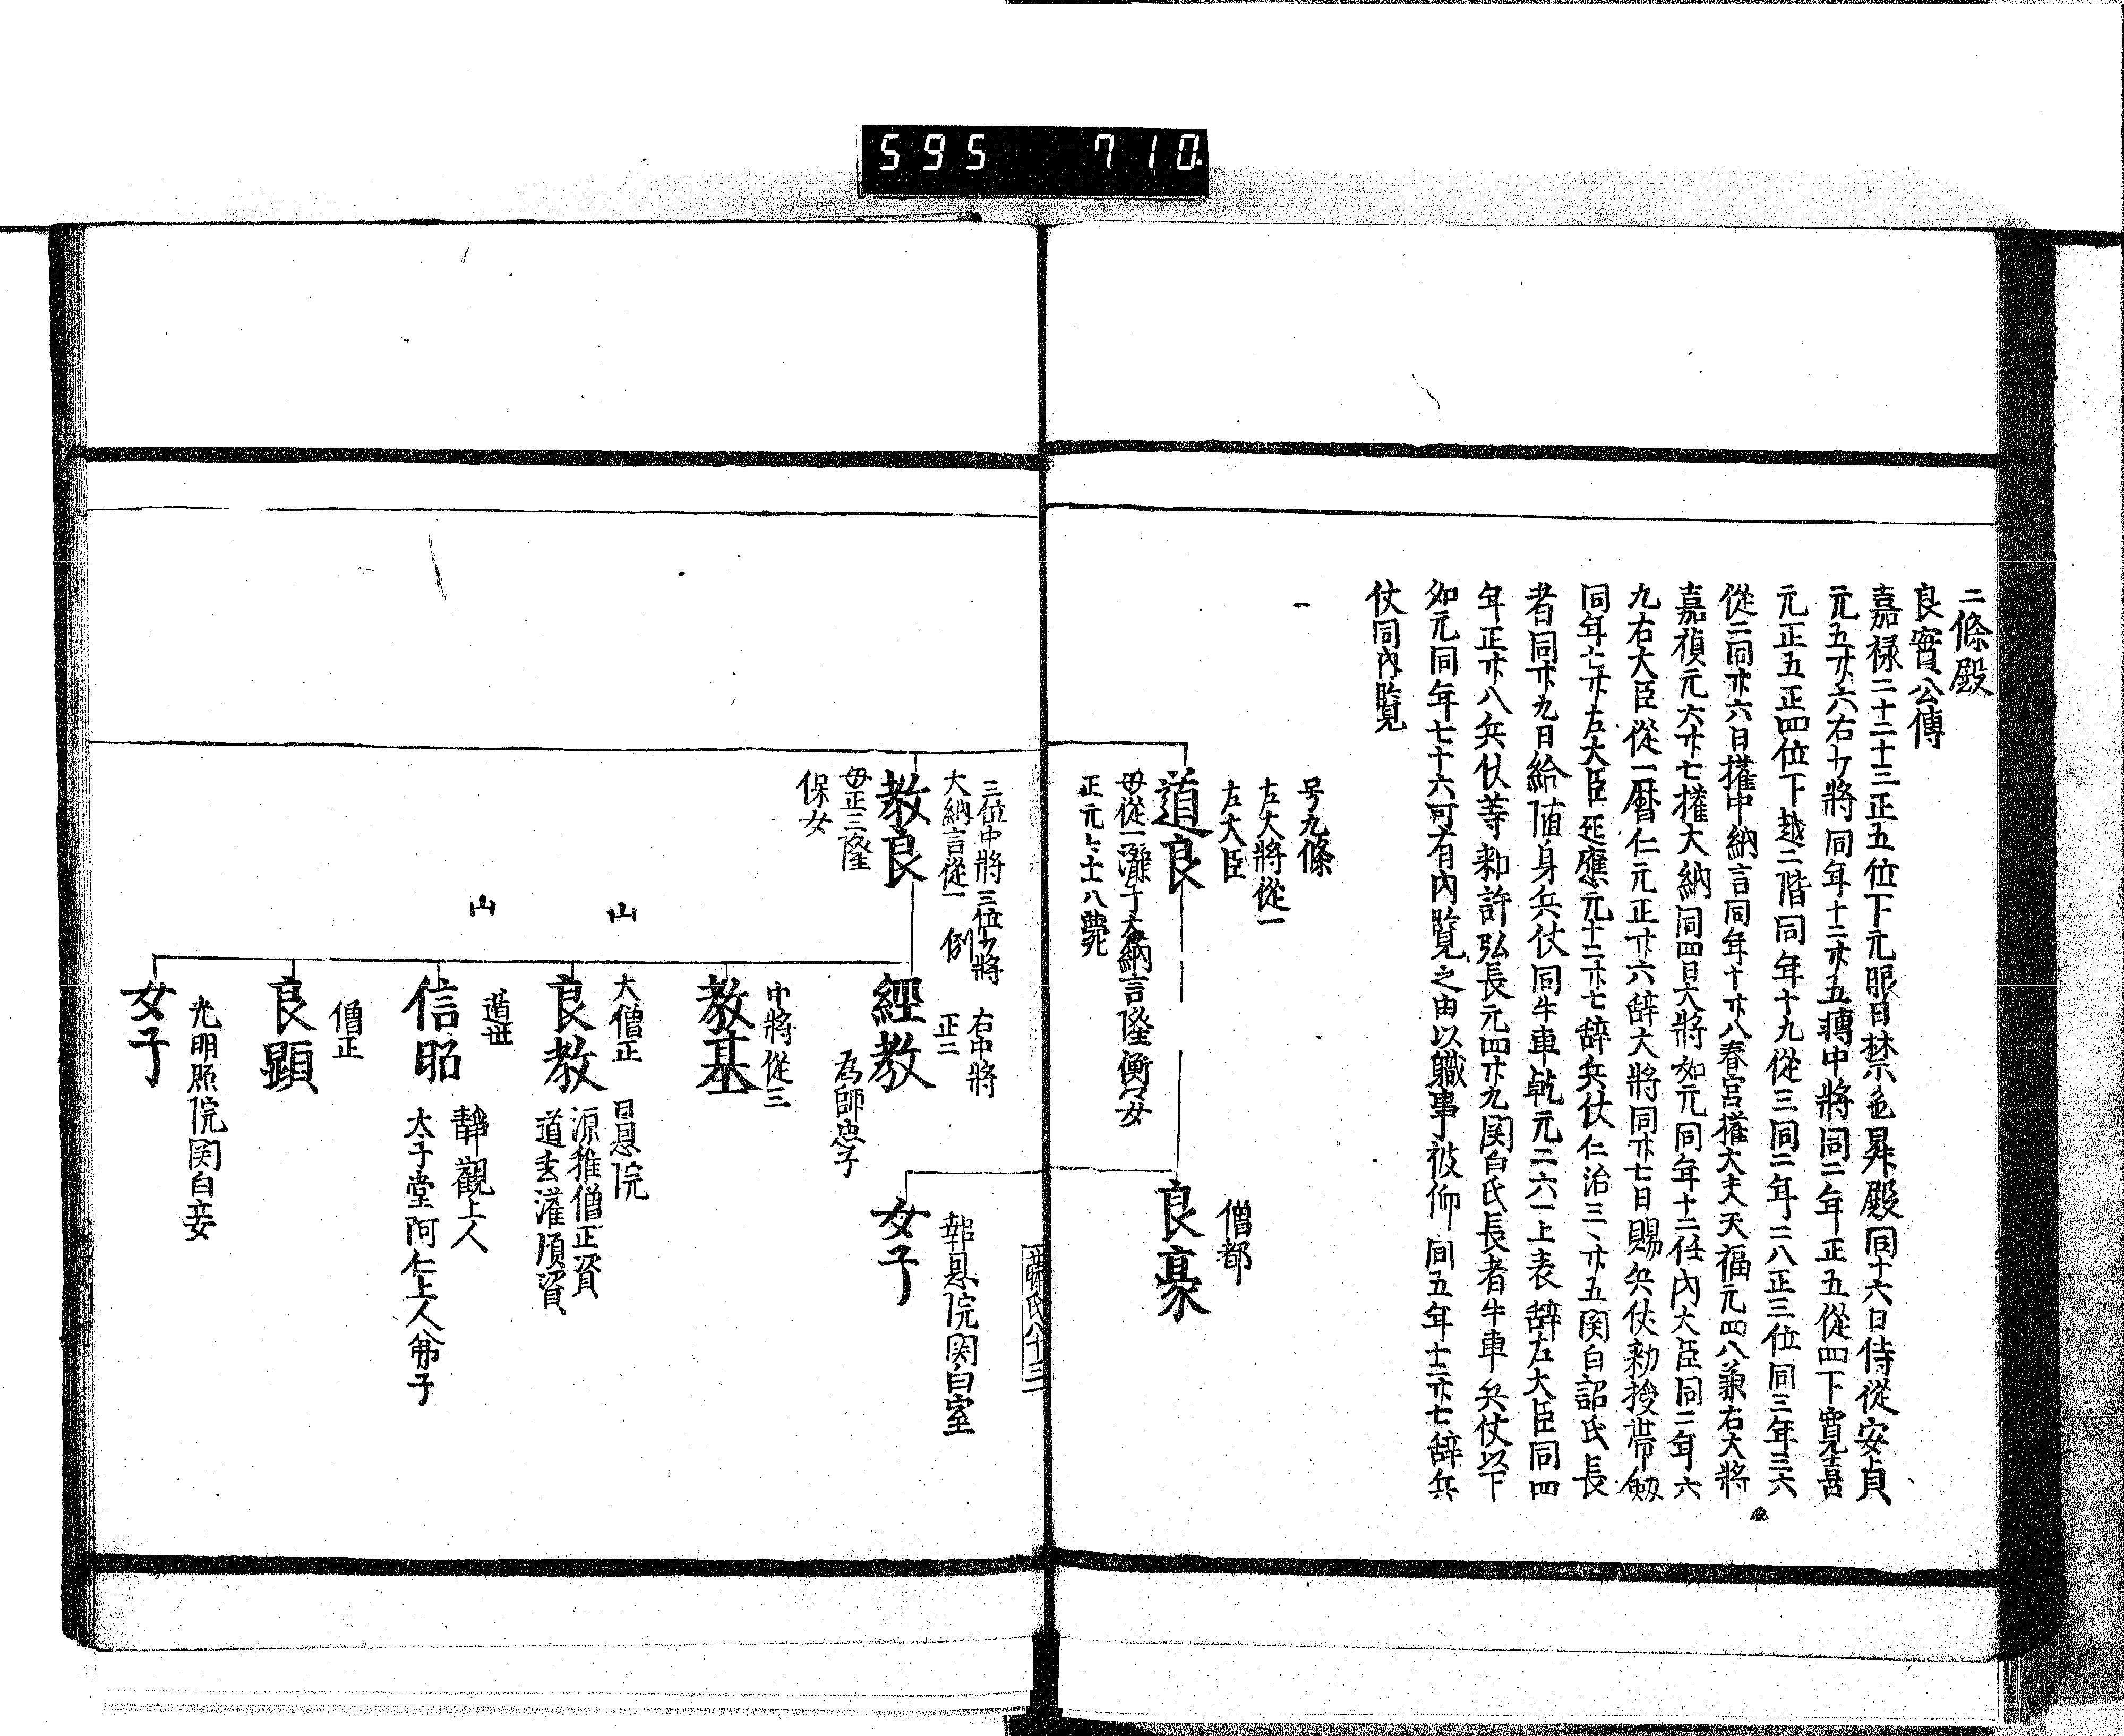 595 710
二條殿
良實公傳
嘉禄二十二十三正五位下元服日禁色昇殿同十六日侍從安貞
元五廿六右少將同年十二廿五轉中將同二年正五從四下寛喜
元正五正四位下越二階同年十九從三同二年二八正三位同三年三六
從二同廿六日權中納言同年十廿八春宮權大夫天福元四八兼右大將
嘉禎元六廿七權大納同四日大將如元同年十二任内大臣同二年六
九右大臣從一暦仁元正廿六辞大將同廿七日賜兵仗勅授帯劔
同年七廿左大臣延應元十二廿七辞兵仗仁治三、廿五関白詔氏長
者同廿九日給隨身兵仗同牛車乾元二六一上表辞左大臣同四
年正廿八兵仗等勅許弘長元四廿九関白氏長者牛車兵仗以下
如元同年七十六可有内覧之由以職事被仰同五年十二廿七辞兵
仗同内覧
号九條
左大將從一
左大臣
道良
母從一灌丁大納言隆衡女
正元々十一八薨
僧都
良豪
報恩院関白室
女子
藤氏八十三
三位中將三位少將
大納言從一 例
教良
母正三隆
保女
右中將
正二
經教
為師忠子
中將從三
教基
山
大僧正
良教
日恩院
源雅僧正資
道玄灌頂資
山
遁世
信昭
靜觀上人
太子堂阿仁上人弟子
僧正
良顯
光明照院関白妾
女子